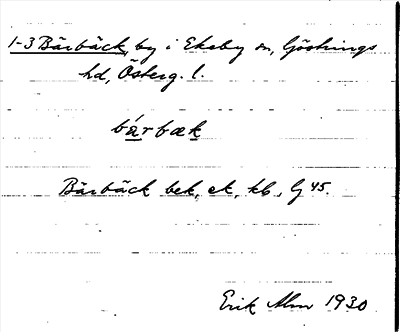 1-3 Bärbäck, by i Ekeby sn, Göstrings
hd, Österg. l.
bárbæk
Bärbäck bek, ek, kb, G 45.
Erik Alm 1930